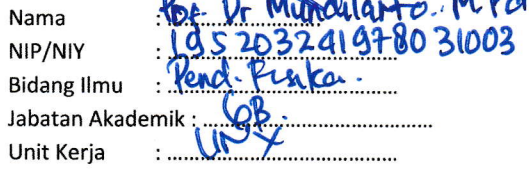 Nama Prof. Dr Mundilarto. M.Pd
NIP/NIY : 195203241978031003
Bidang Ilmu : Pend. Fisika.
Jabatan Akademik : GB.
Unit Kerja : UNY